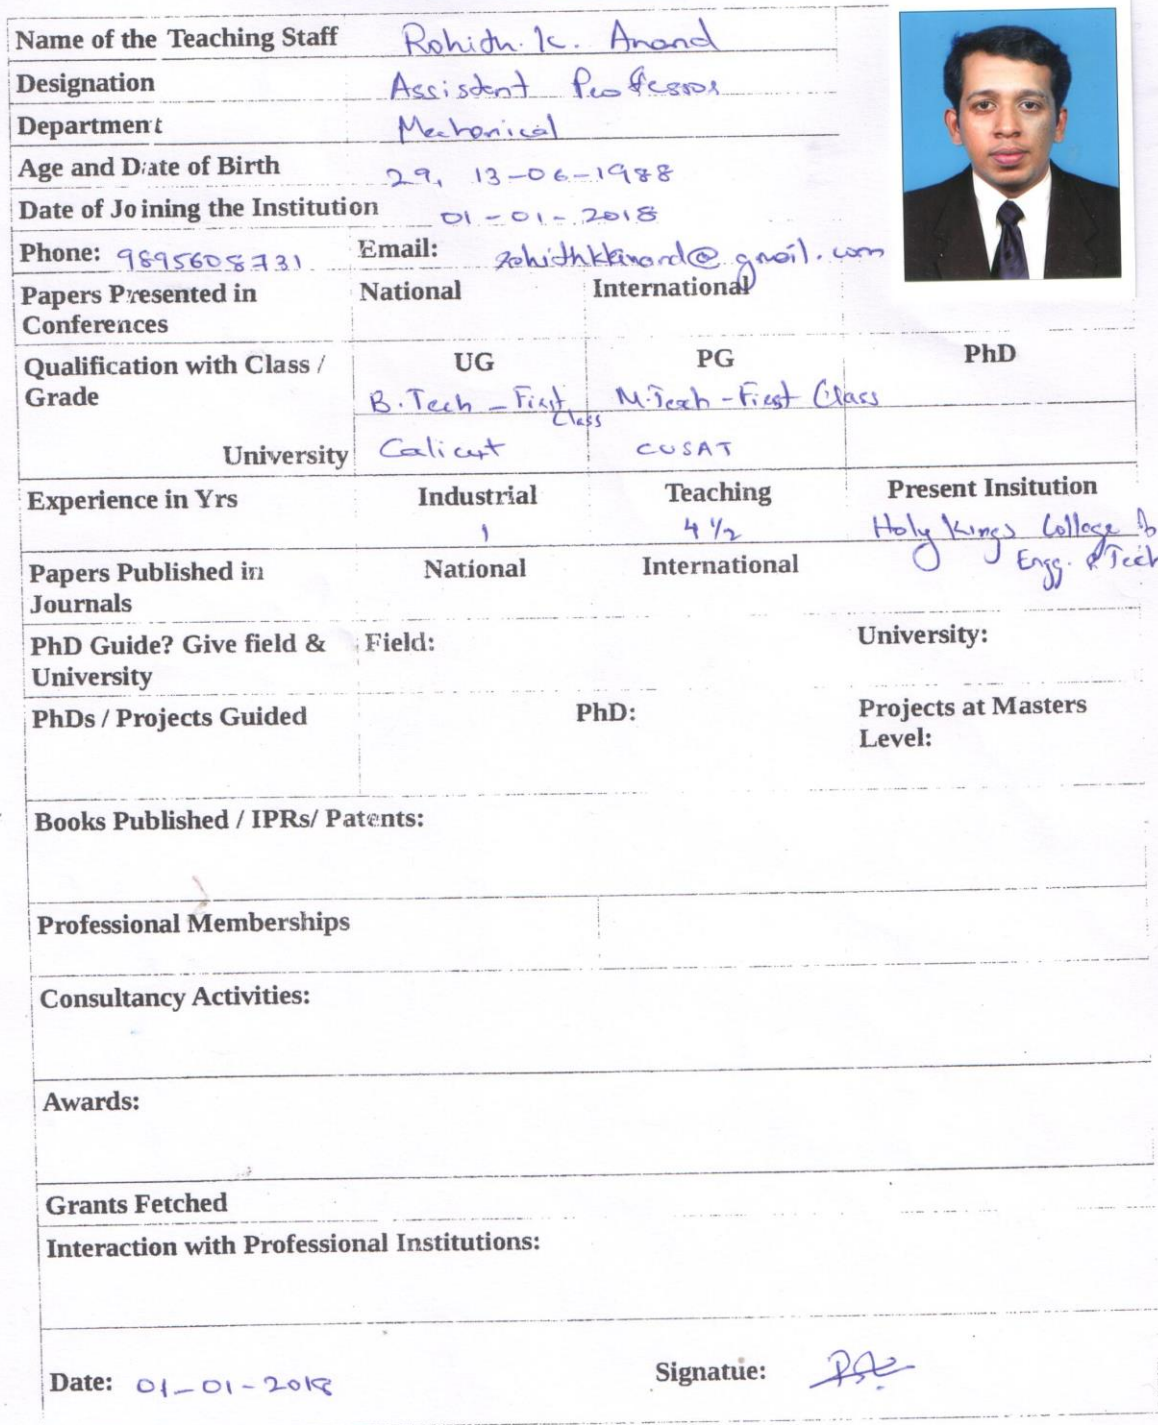 Name of the Teaching Staff Rohith. K. Anand
Designation Assistant Professor
Department Mechanical
Age and Date of Birth 29, 13-06-1988
Date of Joining the Institution 01-01-2018
Phone: 9895608731 Email: rohithkkanand@gmail.com
Papers Presented in National International
Conferences
Qualification with Class / UG PG PhD
Grade B.Tech - First Class M.Tech - First Class
University Calicut CUSAT
Experience in Yrs Industrial Teaching Present Insitution
1 4 1/2 Holy Kings College of
Engg. & Tech
Papers Published in National International
Journals
PhD Guide? Give field & Field: University:
University
PhDs / Projects Guided PhD: Projects at Masters
Level:
Books Published / IPRs/ Patents:
Professional Memberships
Consultancy Activities:
Awards:
Grants Fetched
Interaction with Professional Institutions:
Date: 01-01-2018 Signatue: